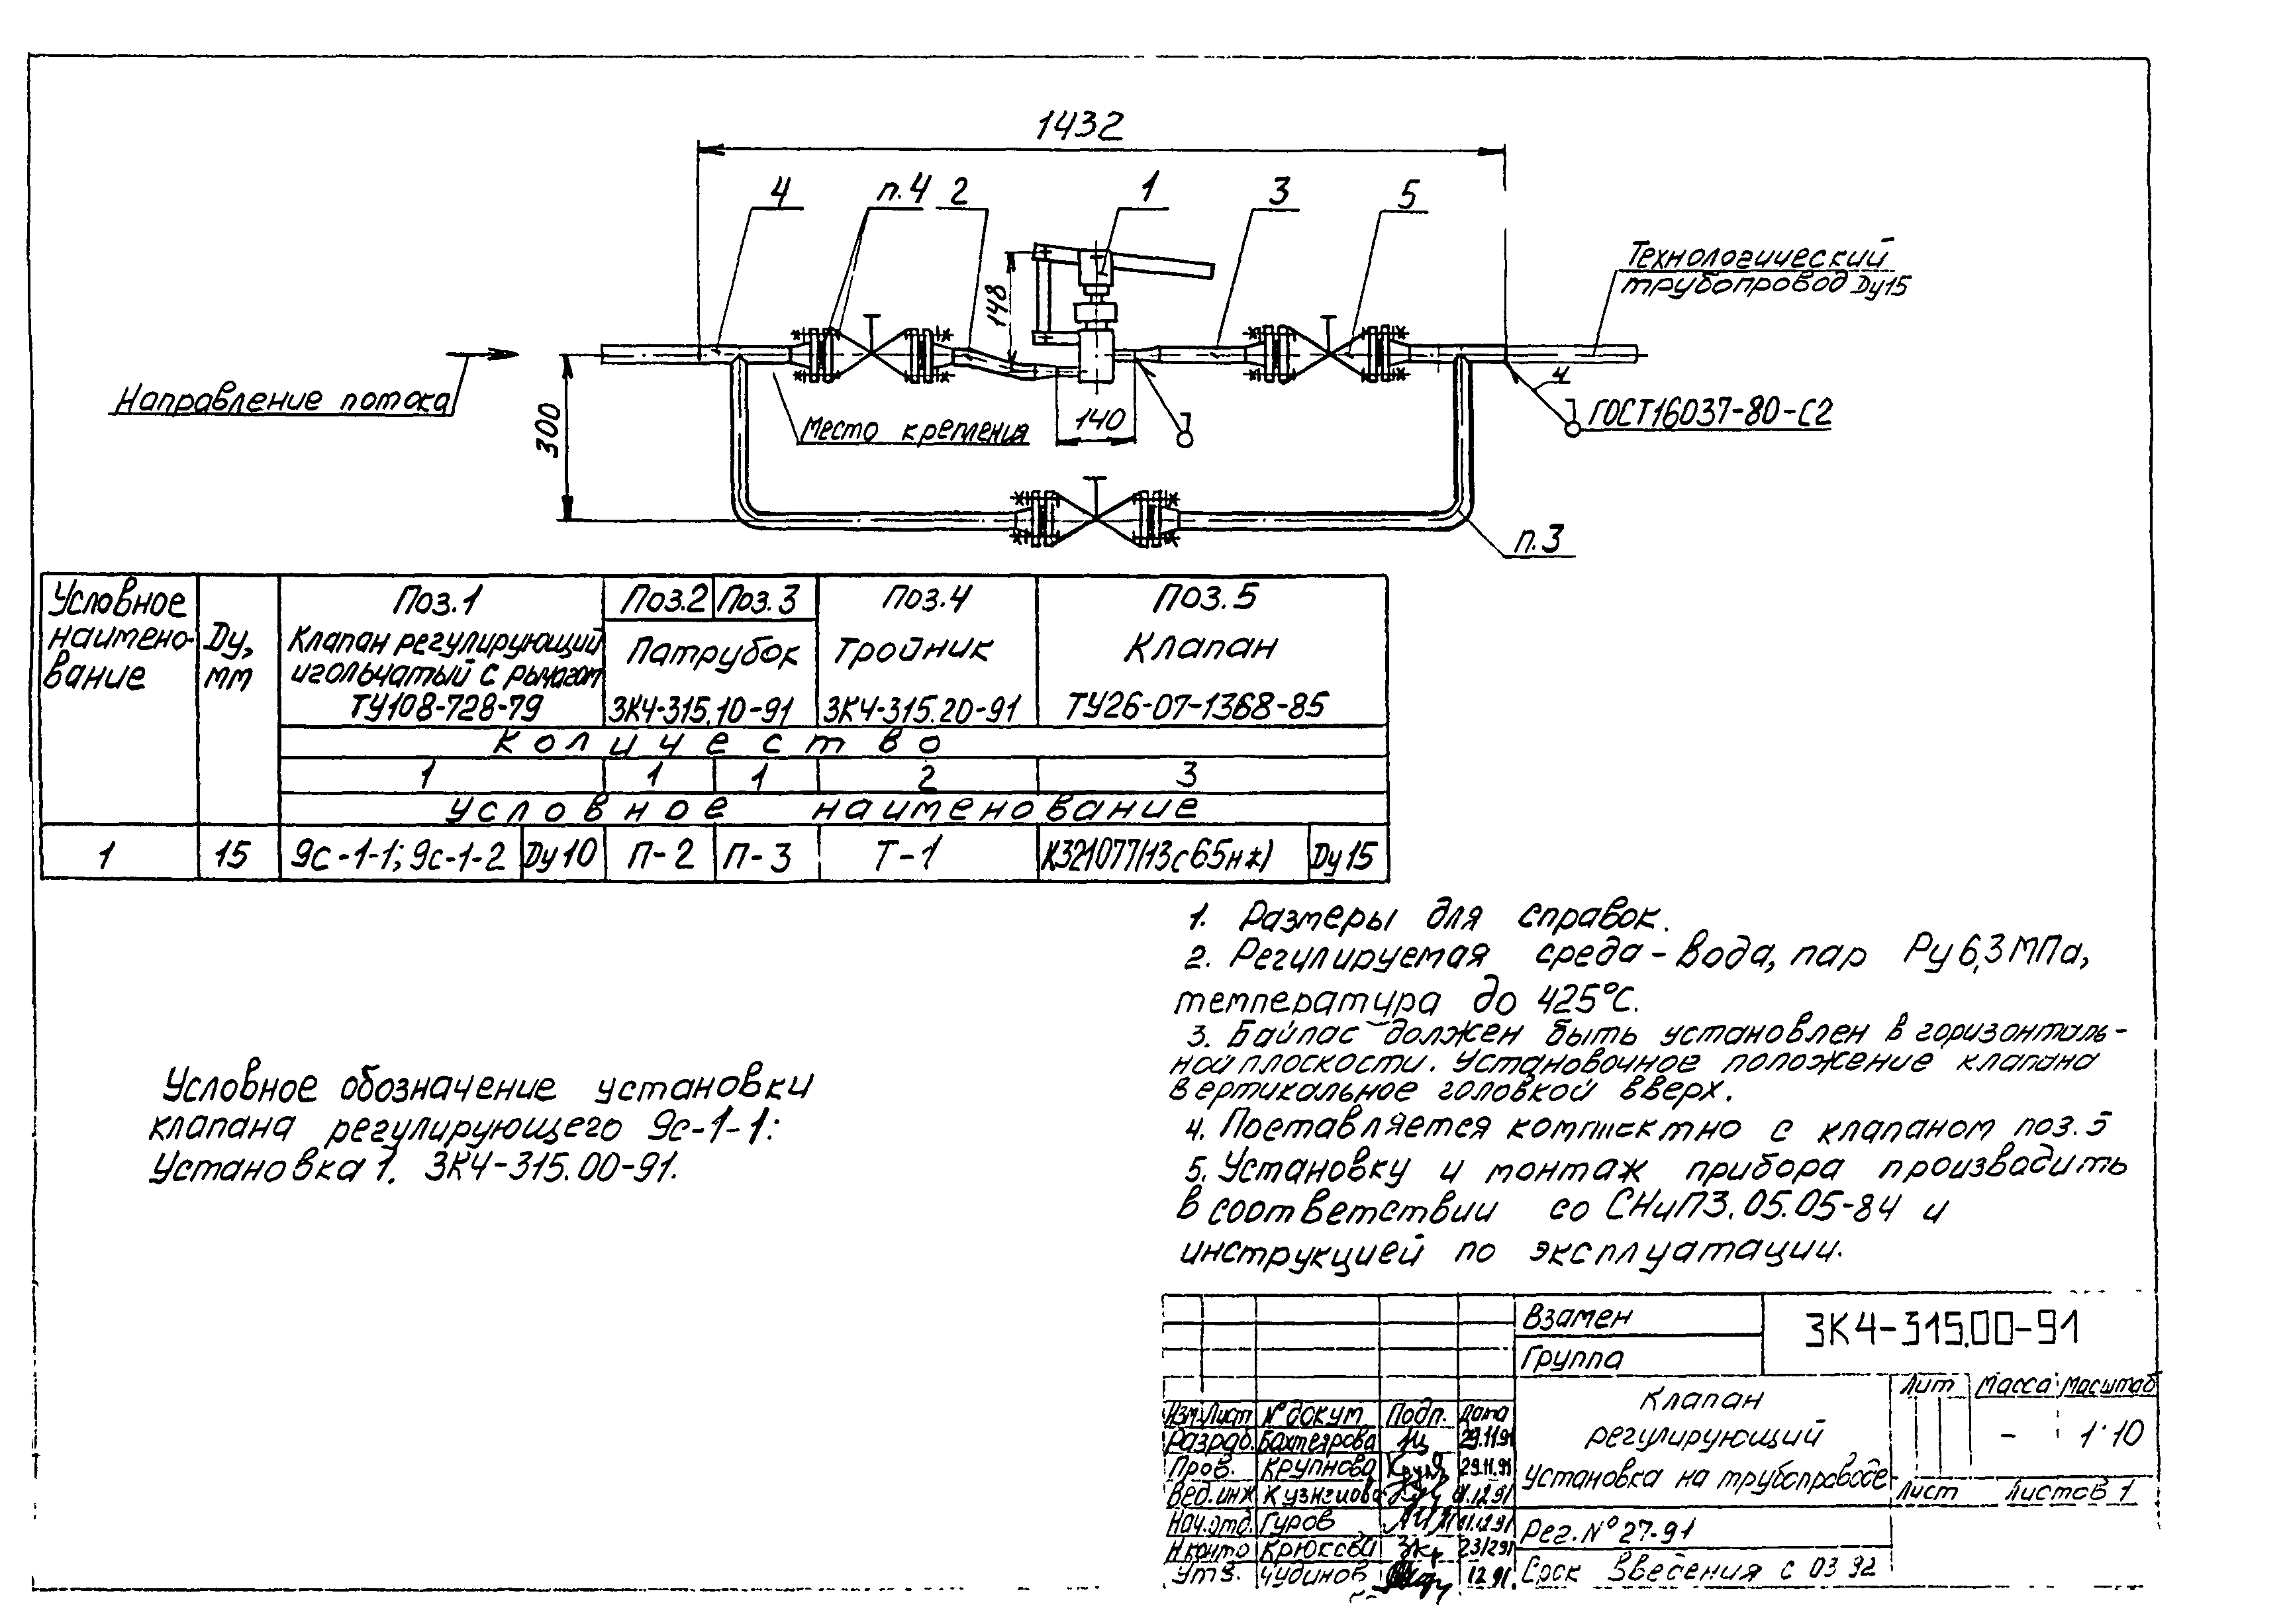 1432
4
п.4
2
1
3
5
Технологический
трубопровод Dу15
148
Направление потока
300
Место крепления
140
4
ГОСТ16037-80-С2
п.3
Условное
наимено-
вание
Dу,
мм
Поз.1
Клапан регулирующий
игольчатый с рычагом
ТУ108-728-79
Поз.2
Поз.3
Патрубок
ЗК4-315.10-91
Поз.4
Тройник
ЗК4-315.20-91
Поз.5
Клапан
ТУ26-07-1368-85
Количество
1
1
1
2
3
Условное наименование
1
15
9с-1-1; 9с-1-2
Dу10
П-2
П-3
Т-1
КЗ21077(13с65нж)
Dу15
1. Размеры для справок.
2. Регулируемая среда - вода, пар Ру 6,3 МПа,
температура до 425°С.
3. Байпас должен быть установлен в горизонталь-
ной плоскости. Установочное положение клапана
вертикальное головкой вверх.
4. Поставляется комплектно с клапаном поз. 5
5. Установку и монтаж прибора производить
в соответствии со СНиП3.05.05-84 и
инструкцией по эксплуатации.
Условное обозначение установки
клапана регулирующего 9с-1-1:
Установка 1. ЗК4-315.00-91.
Взамен
Группа
ЗК4-315.00-91
Изм. Лист № докум Подп. Дата
Разраб. Бахтеярова 29.11.91
Пров. Крупнова 29.11.91
Вед.инж
Нач.отд. Гуров 11.12.91
Н.контр
Утв. Чудинов 12.91.
Клапан
регулирующий
установка на трубопроводе
Лит Масса Масштаб
- 1:10
Лист Листов 1
Рег. № 27-91
Срок введения с 03 92